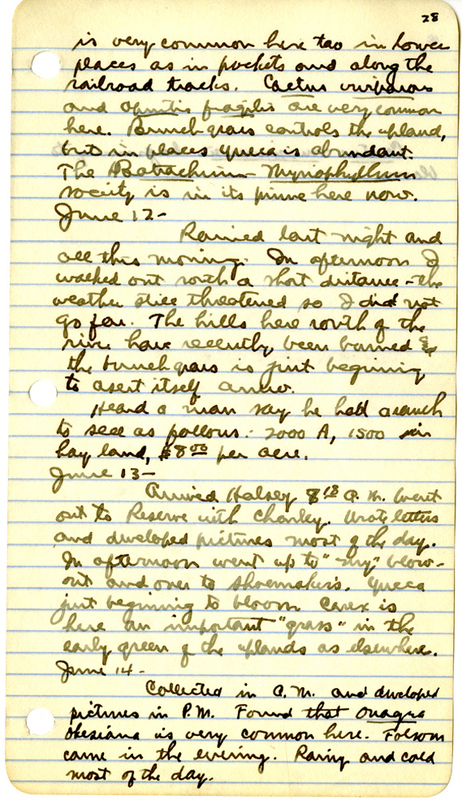 28
is very common here too in lower
places as in pockets and along the
railroad tracks. Cactus viviparus
and Opuntia fragilis are very common
here. Bunch grass controls the upland,
but in places yucca is abundant.
The Batrachium-Myriophyllum
society is in its prime here now.
June 12-
Rained last night and
all this morning. In afternoon I
walked out north a short distance - the
weather still threatened so I did not
go far. The hills here north of the
river have recently been burned &
the bunch grass is just beginning
to asert itself anew.
Heard a man say he had a ranch
to sell as follows: 2000 A, 1500 in
hay land, $8.00 per acre.
June 13-
Arrived Halsey 8 A.M. Went
out to Reserve with Charley. Wrote letters
and developed pictures most of the day.
In afternoon went up to "my" blow-
out and over to Shoemaker's. Yucca
just beginning to bloom. Carex is
here an important "grass" in the
early green of the uplands as elsewhere.
June 14-
Collected in A.M. and developed
pictures in P.M. Found that Onagra
is very common here. Folsom
came in the evening. Rainy and cold
most of the day.